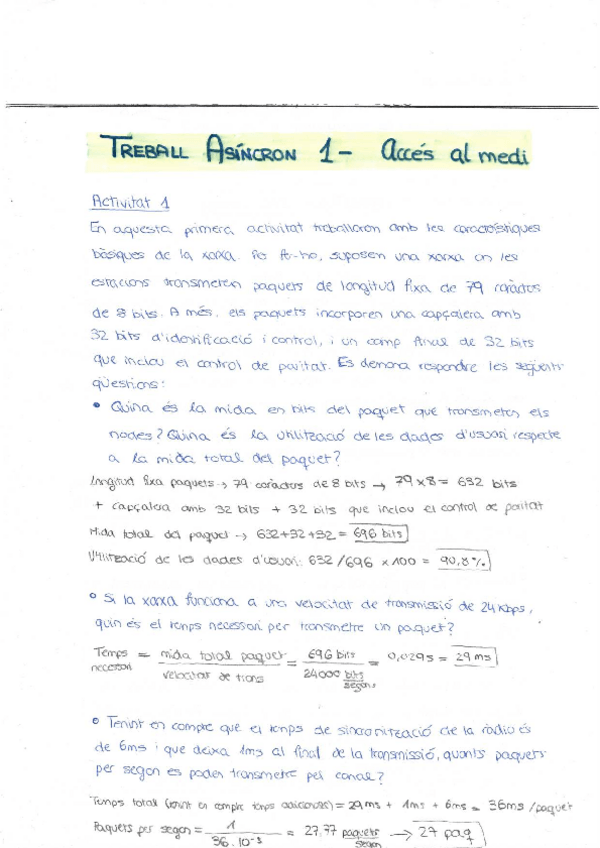 TREBALL ASÍNCRON 1 - Accés al medi
Activitat 1
En aquesta primera activitat treballaron amb les característiques
bàsiques de la xarxa. Per fer-ho, suposen una xarxa on les
estacions transmeten paquets de longitud fixa de 79 caràcters
de 8 bits. A més, els paquets incorporen una capçalera amb
32 bits d'identificació i control, i un camp final de 32 bits
que inclou el control de paritat. Es demana respondre les següents
qüestions:
• Quina és la mida en bits del paquet que transmeten els
nodes? Quina és la utilització de les dades d'usuari respecte
a la mida total del paquet?
Longitud fixa paquets → 79 caràcters de 8 bits → 79 x 8 = 632 bits
+ capçalera amb 32 bits + 32 bits que inclou el control de paritat
Mida total del paquet → 632+32+32 = 696 bits
Utilització de les dades d'usuari: 632/696 x 100 = 90,8%
• Si la xarxa funciona a una velocitat de transmissió de 24 Kbps,
quin és el temps necessari per transmetre un paquet?
Temps necessari = mida total paquet / velocitat de trans = 696 bits / 24000 bits/segons = 0,029s = 29 ms
• Tenint en compte que el temps de sincronització de la ràdio és
de 6ms i que deixa 1ms al final de la transmissió, quants paquets
per segon es poden transmetre pel canal?
Temps total (tenint en compte temps addicionals) = 29 ms + 1ms + 6ms = 36ms/paquet
Paquets per segon = 1 / 36·10⁻³ = 27.77 paquets/segon → 27 paq